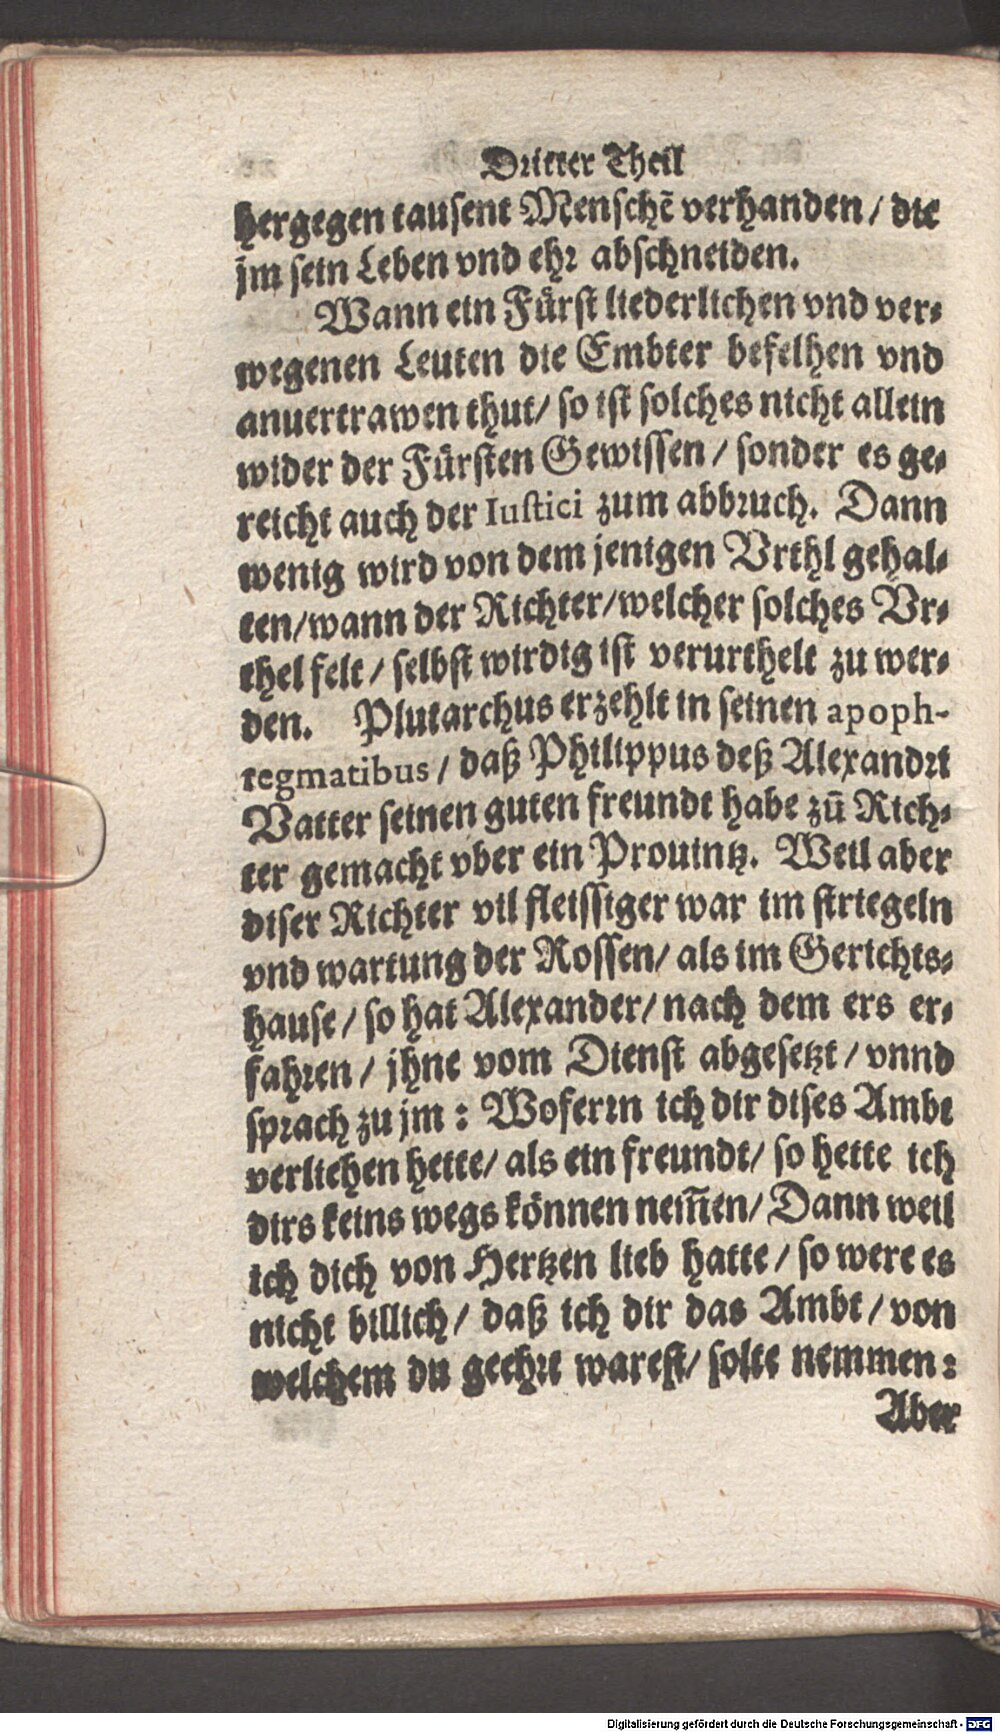 Dritter Theil
hergegen tausent Menschẽ verhanden / die
jm sein Leben vnd ehr abschneiden.
Wann ein Fürst liederlichen vnd ver-
wegenen Leuten die Embter befelhen vnd
anuertrawen thut / so ist solches nicht allein
wider der Fürsten Gewissen / sonder es ge-
reicht auch der Iustici zum abbruch. Dann
wenig wird von dem jenigen Vrthl gehal-
ten / wann der Richter / welcher solches Vr-
thel felt / selbst wirdig ist verurthelt zu wer-
den. Plutarchus erzehlt in seinen apoph-
tegmatibus / daß Philippus deß Alexandri
Vatter seinen guten freundt habe zũ Rich-
ter gemacht vber ein Prouintz. Weil aber
diser Richter vil fleissiger war im striegeln
vnd wartung der Rossen / als im Gerichts-
hause / so hat Alexander / nach dem ers er-
fahren / jhne vom Dienst abgesetzt / vnnd
sprach zu jm : Woferrn ich dir dises Ambt
verliehen hette / als ein freundt / so hette ich
dirs keins wegs können nem̃en / Dann weil
ich dich von Hertzen lieb hatte / so were es
nicht billich / daß ich dir das Ambt / von
welchem du geehrt warest / solte nemmen :
Aber
Digitalisierung gefördert durch die Deutsche Forschungsgemeinschaft - DFG